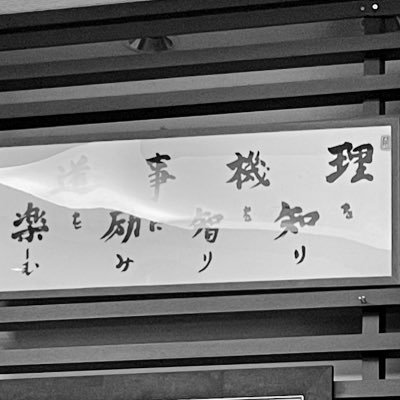 理を知り
機を智り
事に励み
道を楽しむ